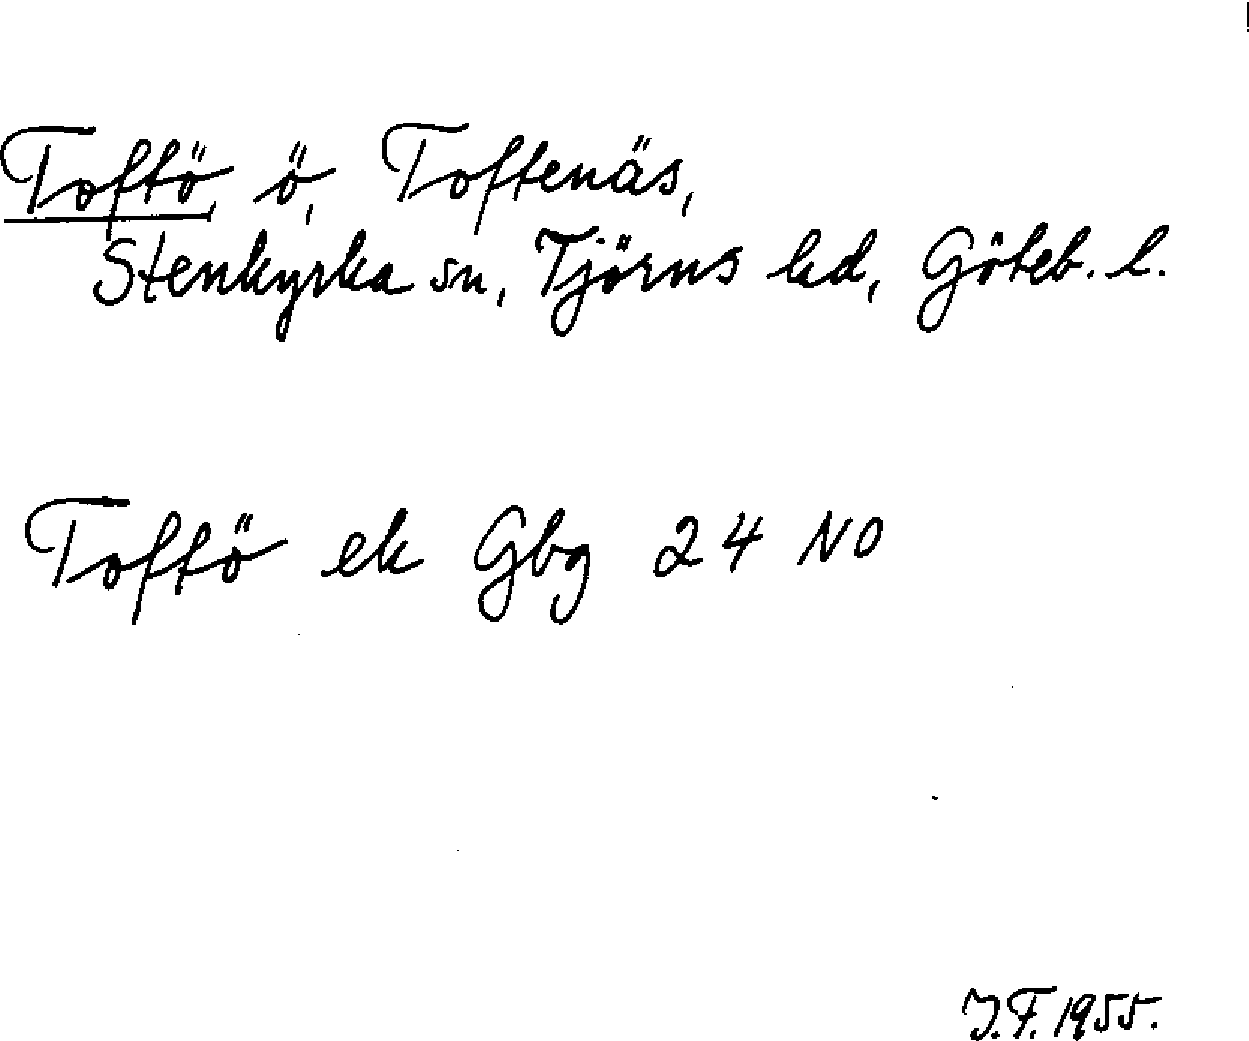 Toftö, ö, Toftenäs,
Stenkyrka sn, Tjörns hd, Göteb. l.
Toftö ek Gbg 24 NO
J.F. 1955.